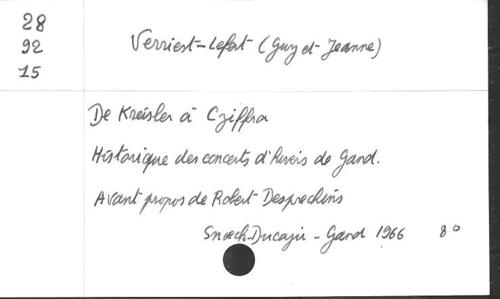 28
92
15
Verriest-Lefert (Guy et Jeanne)
De Kreisler à Cziffra
Historique des concerts d'hivers de Gand.
Avant propos de Robert Desprechins
Snoeck-Ducaju - Gand 1966 8°